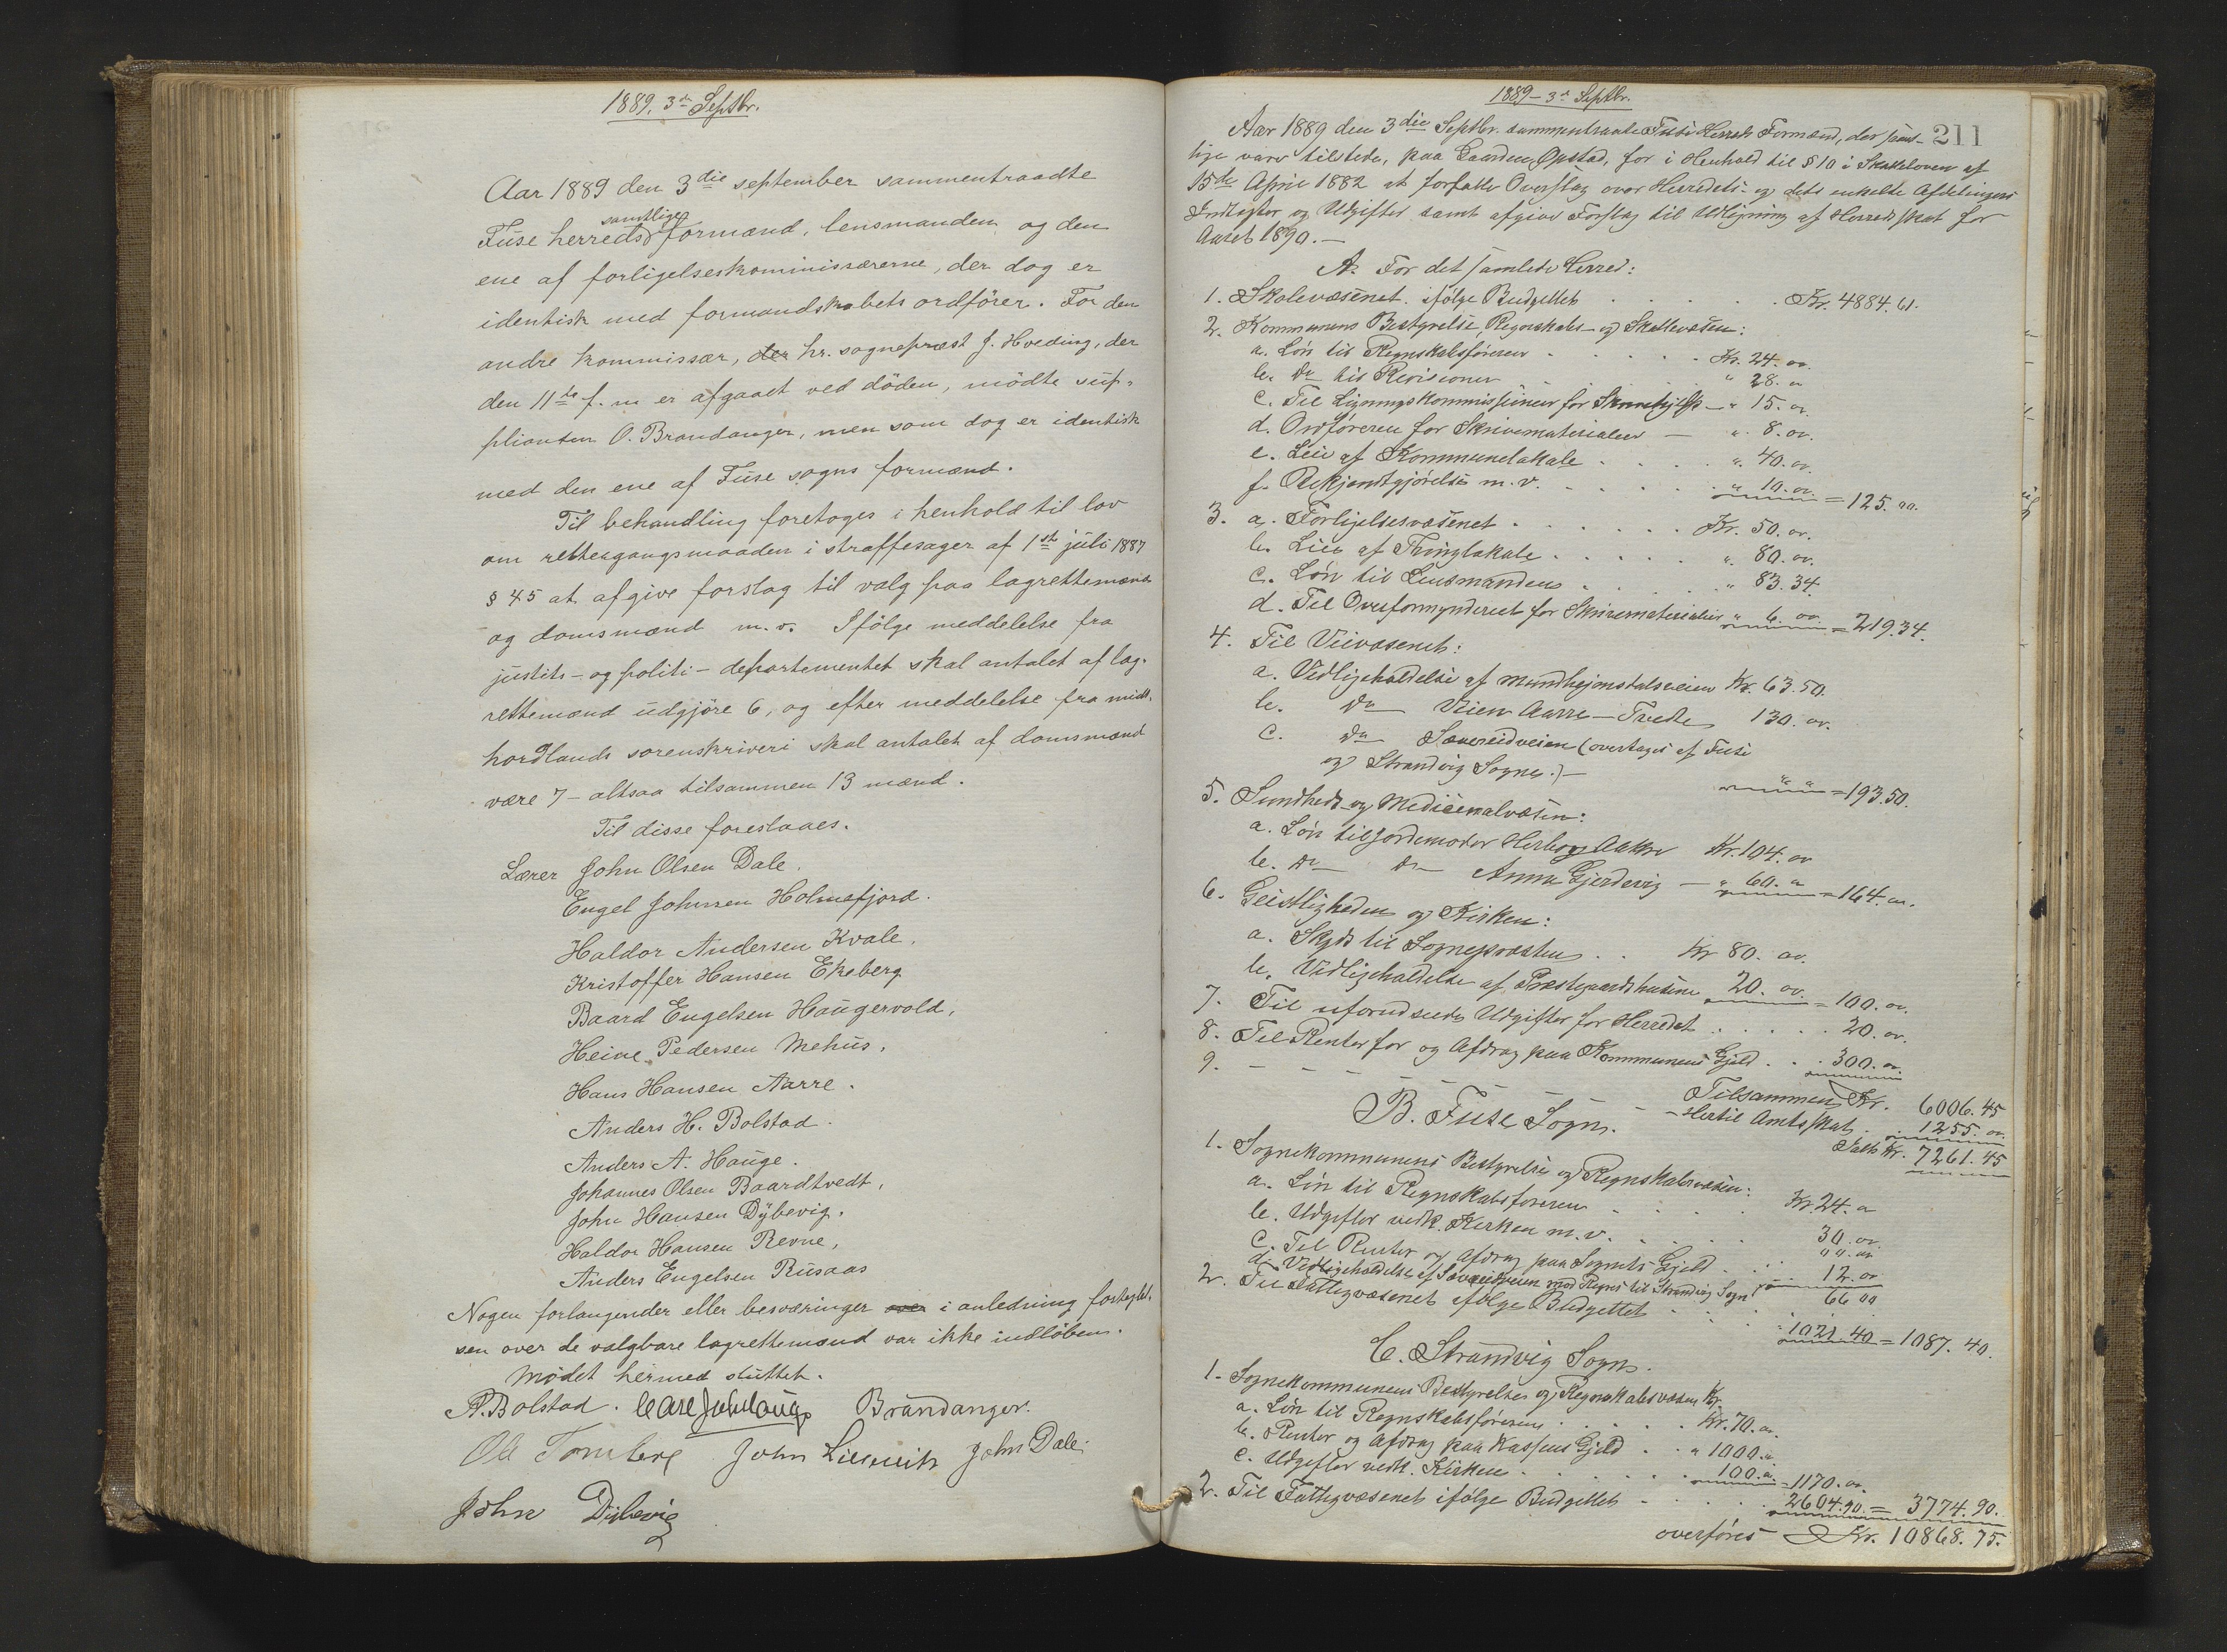 1889. 3die Septbr.
Aar 1889 den 3die september sammentraadte
Fuse herreds samtlige formænd, lensmanden og den
ene af forligelseskommissærerne, der dog er
identisk med formandskabets ordförer. For den
andre kommissær, der hr. sognepræst J. Hveding, der
den 11te f. m er afgaaet ved döden, mödte sup-
plianten O. Brandanger, men som dog er identisk
med den ene af Fuse sogns formænd.
Til behandling foretoges i henhold til lov
om rettergangsmaaden i straffesager af 1ste juli 1887
§ 45 at afgive forslag til valg paa lagrettemænd
og domsmænd m. v. Ifölge meddelelse fra
justits- og politi-departementet skal antalet af lag-
rettemænd udgjöre 6, og efter meddelelse fra midt-
hordlands sorenskriveri skal antalet af domsmænd
være 7 - altsaa tilsammen 13 mænd.
Til disse foreslaaes.
Lærer John Olsen Dale.
Engel Johnsen Holmefjord.
Haldor Andersen Kvale.
Kristoffer Hansen Ekeberg
Baard Engelsen Haugervold,
Heine Pedersen Mehus,
Hans Hansen Aarre.
Anders H. Bolstad.
Anders A. Hauge.
Johannes Olsen Baardtvedt,
John Hansen Dybevig.
Haldor Hansen Revne,
Anders Engelsen Rusaas
Nogen forlangender eller besværinger over i anledning fortegnel-
sen over de valgbare lagrettemænd var ikke indløben.
Mødet hermed sluttet.
A. Bolstad. Brandanger.
Ole John John Dale
John Dybevig
1889 - 3die Septbr.
211
Aar 1889 den 3die Septbr. sammentraadte Fuse Herreds Formænd, der samt-
lige vare tilstede, paa Gaarden Opstad, for i Henhold til § 10 i Skatteloven af
15de April 1882 at forfatte Overslag over Herredets og dets enkelte Afdelingers
Indtægter og Udgifter samt afgive Forslag til Udligning af Herredsskat for
Aaret 1890. —
A. For det samlede Herred:
1. Skolevæsenet ifølge Budgettet . . . Kr. 4884.61.
2. Kommunens Bestyrelse, Regnskabs- og Skattevæsen:
a. Løn til Regnskabsføreren . . . Kr. 24. oo.
b. Do til Revisionen . . . " 28. "
c. Til Ligningskommissionen for Skrivehjælp — " 15. oo.
d. Ordføreren for Skrivematerialier — " 8. oo.
e. Leie af Kommunelokale . . . " 40. oo.
f. Bekjendtgjørelse m. v. . . . " 10. oo. = 125. oo.
3. a. Forligelsesvæsenet . . . Kr. 50. oo.
b. Leie af Thinglokale . . . " 80. oo.
c. Løn til Lensmanden . . . " 83.34.
d. Til Overformynderiet for Skrivematerialier " 6. oo = 219.34.
4. Til Veivæsenet:
a. Vedligeholdelse af Mundhejmsdalsveien Kr. 63.50.
b. Do Veien Aarre - Tvedte 130. oo.
c. Do Sævereidveien (overtages af Fuse
og Strandvig Sogne.) — " " = 193.50.
5. Sundheds- og Medicinalvæsen:
a. Løn til Jordemoder Herborg Aakre Kr. 104. oo
b. Do Do Anna Gjerdevig — " 60. " = 164. oo.
6. Geistligheden og Kirken:
a. Skyds til Sognepræsten . . Kr 80. oo.
b. Vedligeholdelse af Præstegaardshusene 20. oo. = 100. oo.
7. Til uforudseede Udgifter for Herredet . . . 20. oo.
8. Til Renter for og Afdrag paa Kommunens Gjeld . . . 300. oo.
9. — — — — — Tilsammen Kr. 6006.45
Hertil Amtsskat . 1255. oo
Ialt Kr. 7261.45
B. Fuse Sogn.
1. Sognekommunens Bestyrelse og Regnskabsvæsen:
a. Løn til Regnskabsføreren . . . Kr. 24. oo
b. Udgifter vedk. Kirken m. v. . . . 30. oo
c. Til Renter og Afdrag paa Sognets Gjeld . . . " " "
d. Vedligeholdelse af Sævereidveien mod Regres til Strandvig Sogn . . 12. oo
66 oo
2. Til Fattigvæsenet ifølge Budgettet . . . 1021.40 = 1087.40.
C. Strandvig Sogn.
1. Sognekommunens Bestyrelse og Regnskabsvæsen Kr.
a. Løn til Regnskabsføreren . . . Kr. 70. oo.
b. Renter og Afdrag paa Kassens Gjeld . . " 1000. "
c. Udgifter vedk. Kirken . . . 100. oo. = 1170. oo.
2. Til Fattigvæsenet ifølge Budgettet . . . 2604.90. = 3774.90.
overføres Kr. 10868.75.